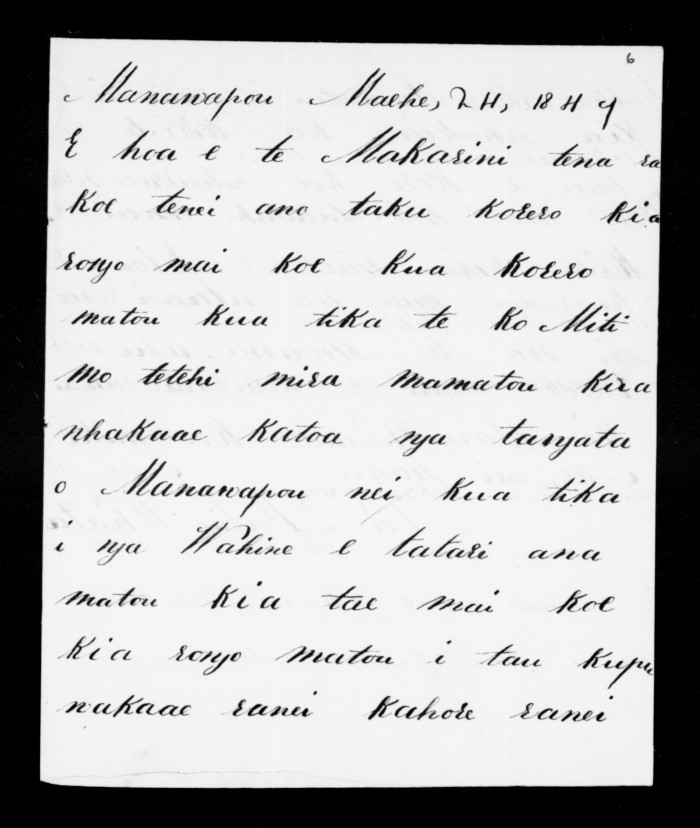 6
Manawapou Maehe, 24, 1849
E hoa e te Makarini tena ra
koe tenei ano taku korero kia
rongo mai koe kua korero
matou kua tika te ko Miti
mo tetehi mira mamatou kua
whakaae katoa nga tangata
o Manawapou nei kua tika
i nga Wahine e tatari ana
matou kia tae mai koe
kia rongo matou i tau kupu
wakaae ranei kahore ranei